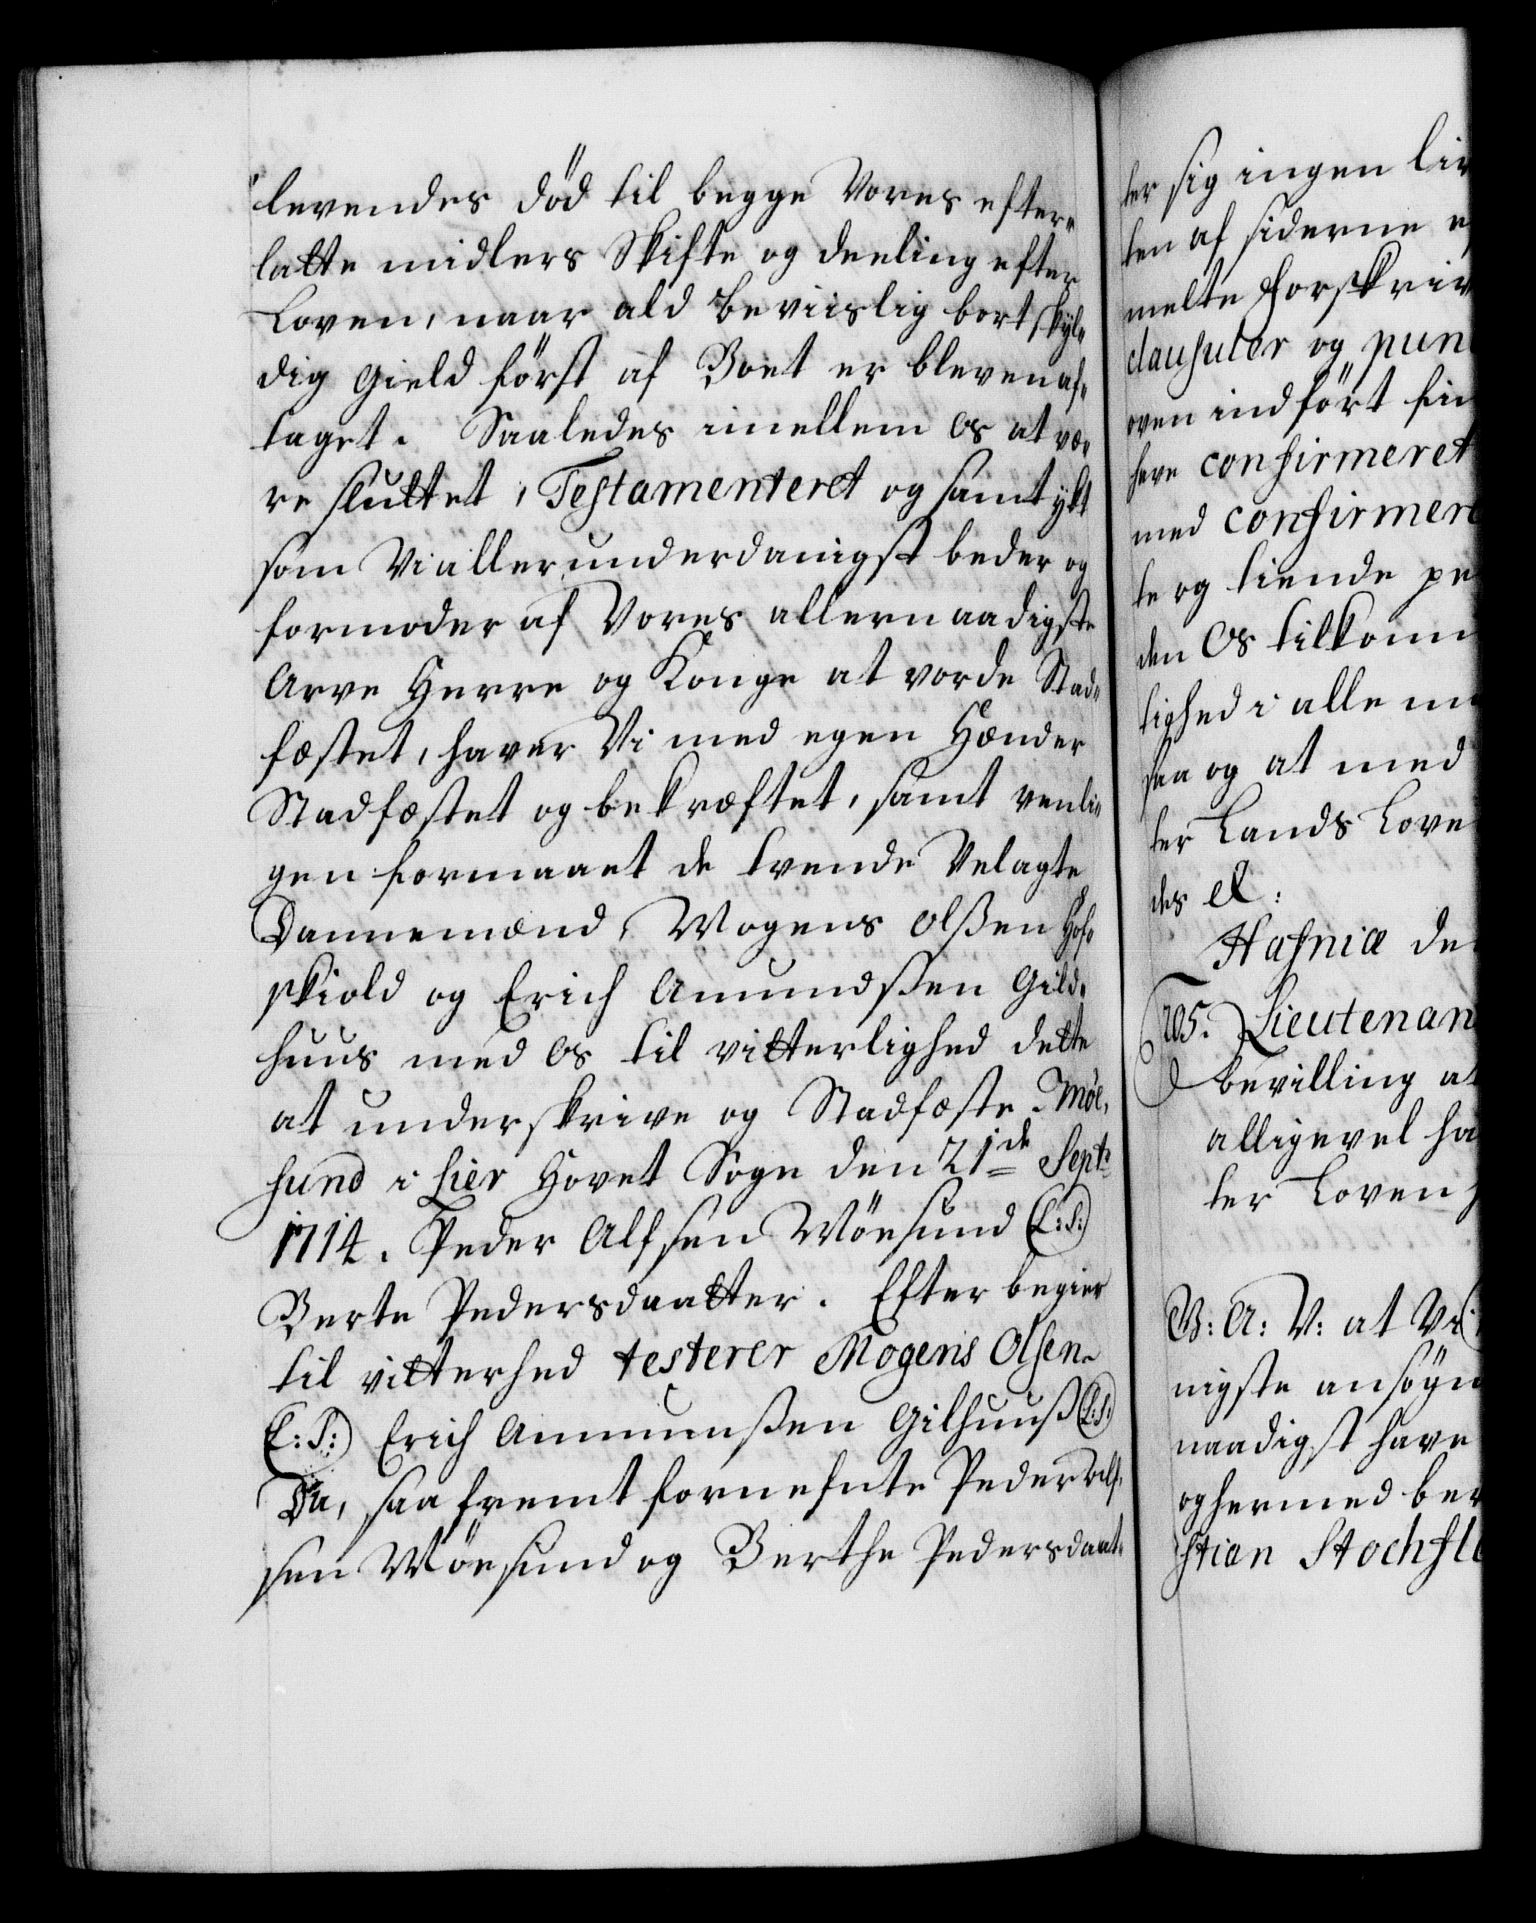 levendes död til begge Vores efter-
latte midlers Skifte og deeling efter
Loven, naar ald beviislig bort skyl-
dig gield först af Boet er bleven af-
taget. Saaledes imellem os at væ-
re sluttet, Testamenteret og samtykt
som Vi allerunderdanigst beder og
formoder af Vores allernaadigste
Arve Herre og Konge at vorde Stad-
fæstet, haver Vi med egen Hænder
Stadfæstet og bekræftet, samt venli-
gen formaaet de tvende Velagte
Dannemænd, Mogens Olßen Hof-
skiold og Erich Amundßen Gild-
huus med os til vitterlighed dette
at underskrive og Stadfæste. Möe,
sund i Lier Hovet Sogn den 21de Septr
1714. Peder Alfsen Möesund (L:S:)
Berte Pedersdaatter. Efter begier
til vitterhed testerer Mogens Olsen
(L:S:) Erich Ammunßen Gilhuuß (L:S:)
Da, saafremt fornefnte Peder Alf-
sen Möesund og Berthe Pedersdaat-
ter sig ingen liv
ten af siderne e
melte forskriv
clausuler og pun
oven indfört fin
have confirmeret
med confirmere
te og tiende pe
den Os tilkomm
tighed i alle m
saa og at med
ter Lands Love
des &:
Hafniæ de
205. Lieutenan
bevilling at
alligevel ha
ter Loven
G: A: V: at Vi
nigste ansögn
naadigst have
og hermed be
stian Stochfle